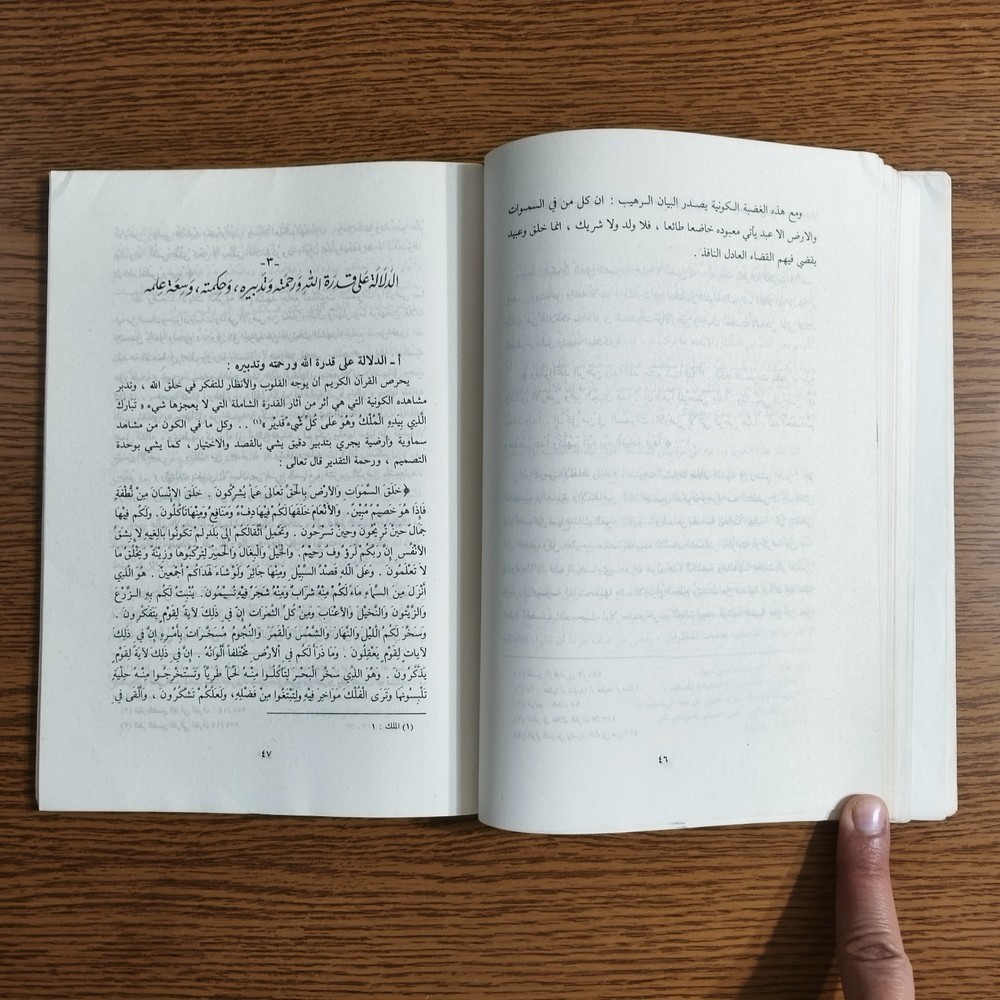 ومع هذه الغضبة الكونية يصدر البيان الرهيب : ان كل من في السموات
والارض الا عبد يأتي معبوده خاضعا طائعا ، فلا ولد ولا شريك ، انما خلق وعبيد
يقضي فيهم القضاء العادل النافذ .
٤٦
-٣-
الدَلَالة عَلى قدرَة اللهِ وَرَحمَته وَتَدبيره، وَحِكمته، وَسِعَة عِلمه
أ ـ الدلالة على قدرة الله ورحمته وتدبيره :
يحرص القرآن الكريم أن يوجه القلوب والأنظار للتفكر في خلق الله ، وتدبر
مشاهده الكونية التي هي أثر من آثار القدرة الشاملة التي لا يعجزها شيء « تَبَارَكَ
الَّذِي بِيَدِهِ الْمُلْكُ وَهُوَ عَلَىٰ كُلِّ شَيْءٍ قَدِيرٌ »(١) . . وكل ما في الكون من مشاهد
سماوية وأرضية يجري بتدبير دقيق يشي بالقصد والاختيار ، كما يشي بوحدة
التصميم ، ورحمة التقدير قال تعالى :
﴿خَلَقَ السَّمَوَاتِ وَالأَرْضَ بِالْحَقِّ تَعَالَىٰ عَمَّا يُشْرِكُونَ . خَلَقَ الإِنْسَانَ مِنْ نُطْفَةٍ
فَإِذَا هُوَ خَصِيمٌ مُبِينٌ. وَالأَنْعَامَ خَلَقَهَا لَكُمْ فِيهَا دِفْءٌ وَمَنَافِعُ وَمِنْهَا تَأْكُلُونَ. وَلَكُمْ فِيهَا
جَمَالٌ حِينَ تُرِيحُونَ وَحِينَ تَسْرَحُونَ . وَتَحْمِلُ أَثْقَالَكُمْ إِلَىٰ بَلَدٍ لَمْ تَكُونُوا بَالِغِيهِ إِلا بِشِقِّ
الأَنْفُسِ إِنَّ رَبَّكُمْ لَرَؤُوفٌ رَحِيمٌ. وَالْخَيْلَ وَالْبِغَالَ وَالْحَمِيرَ لِتَرْكَبُوهَا وَزِينَةً وَيَخْلُقُ مَا
لا تَعْلَمُونَ . وَعَلَى اللهِ قَصْدُ السَّبِيلِ وَمِنْهَا جَائِرٌ وَلَوْ شَاءَ لَهَدَاكُمْ أَجْمَعِينَ . هُوَ الَّذِي
أَنْزَلَ مِنَ السَّمَاءِ مَاءً لَكُمْ مِنْهُ شَرَابٌ وَمِنْهُ شَجَرٌ فِيهِ تُسِيمُونَ . يُنْبِتُ لَكُمْ بِهِ الزَّرْعَ
وَالزَّيْتُونَ وَالنَّخِيلَ وَالأَعْنَابَ وَمِنْ كُلِّ الثَّمَرَاتِ إِنَّ فِي ذَلِكَ لآيَةً لِقَوْمٍ يَتَفَكَّرُونَ .
وَسَخَّرَ لَكُمُ اللَّيْلَ وَالنَّهَارَ وَالشَّمْسَ وَالْقَمَرَ وَالنُّجُومُ مُسَخَّرَاتٌ بِأَمْرِهِ إِنَّ فِي ذَلِكَ
لآيَاتٍ لِقَوْمٍ يَعْقِلُونَ . وَمَا ذَرَأَ لَكُمْ فِي الأَرْضِ مُخْتَلِفًا أَلْوَانُهُ . إِنَّ فِي ذَلِكَ لآيَةً لِقَوْمٍ
يَذَّكَّرُونَ . وَهُوَ الَّذِي سَخَّرَ الْبَحْرَ لِتَأْكُلُوا مِنْهُ لَحْمًا طَرِيًّا وَتَسْتَخْرِجُوا مِنْهُ حِلْيَةً
تَلْبَسُونَهَا وَتَرَى الْفُلْكَ مَوَاخِرَ فِيهِ وَلِتَبْتَغُوا مِنْ فَضْلِهِ، وَلَعَلَّكُمْ تَشْكُرُونَ ، وَأَلْقَىٰ فِي
(١) الملك : ١
٤٧